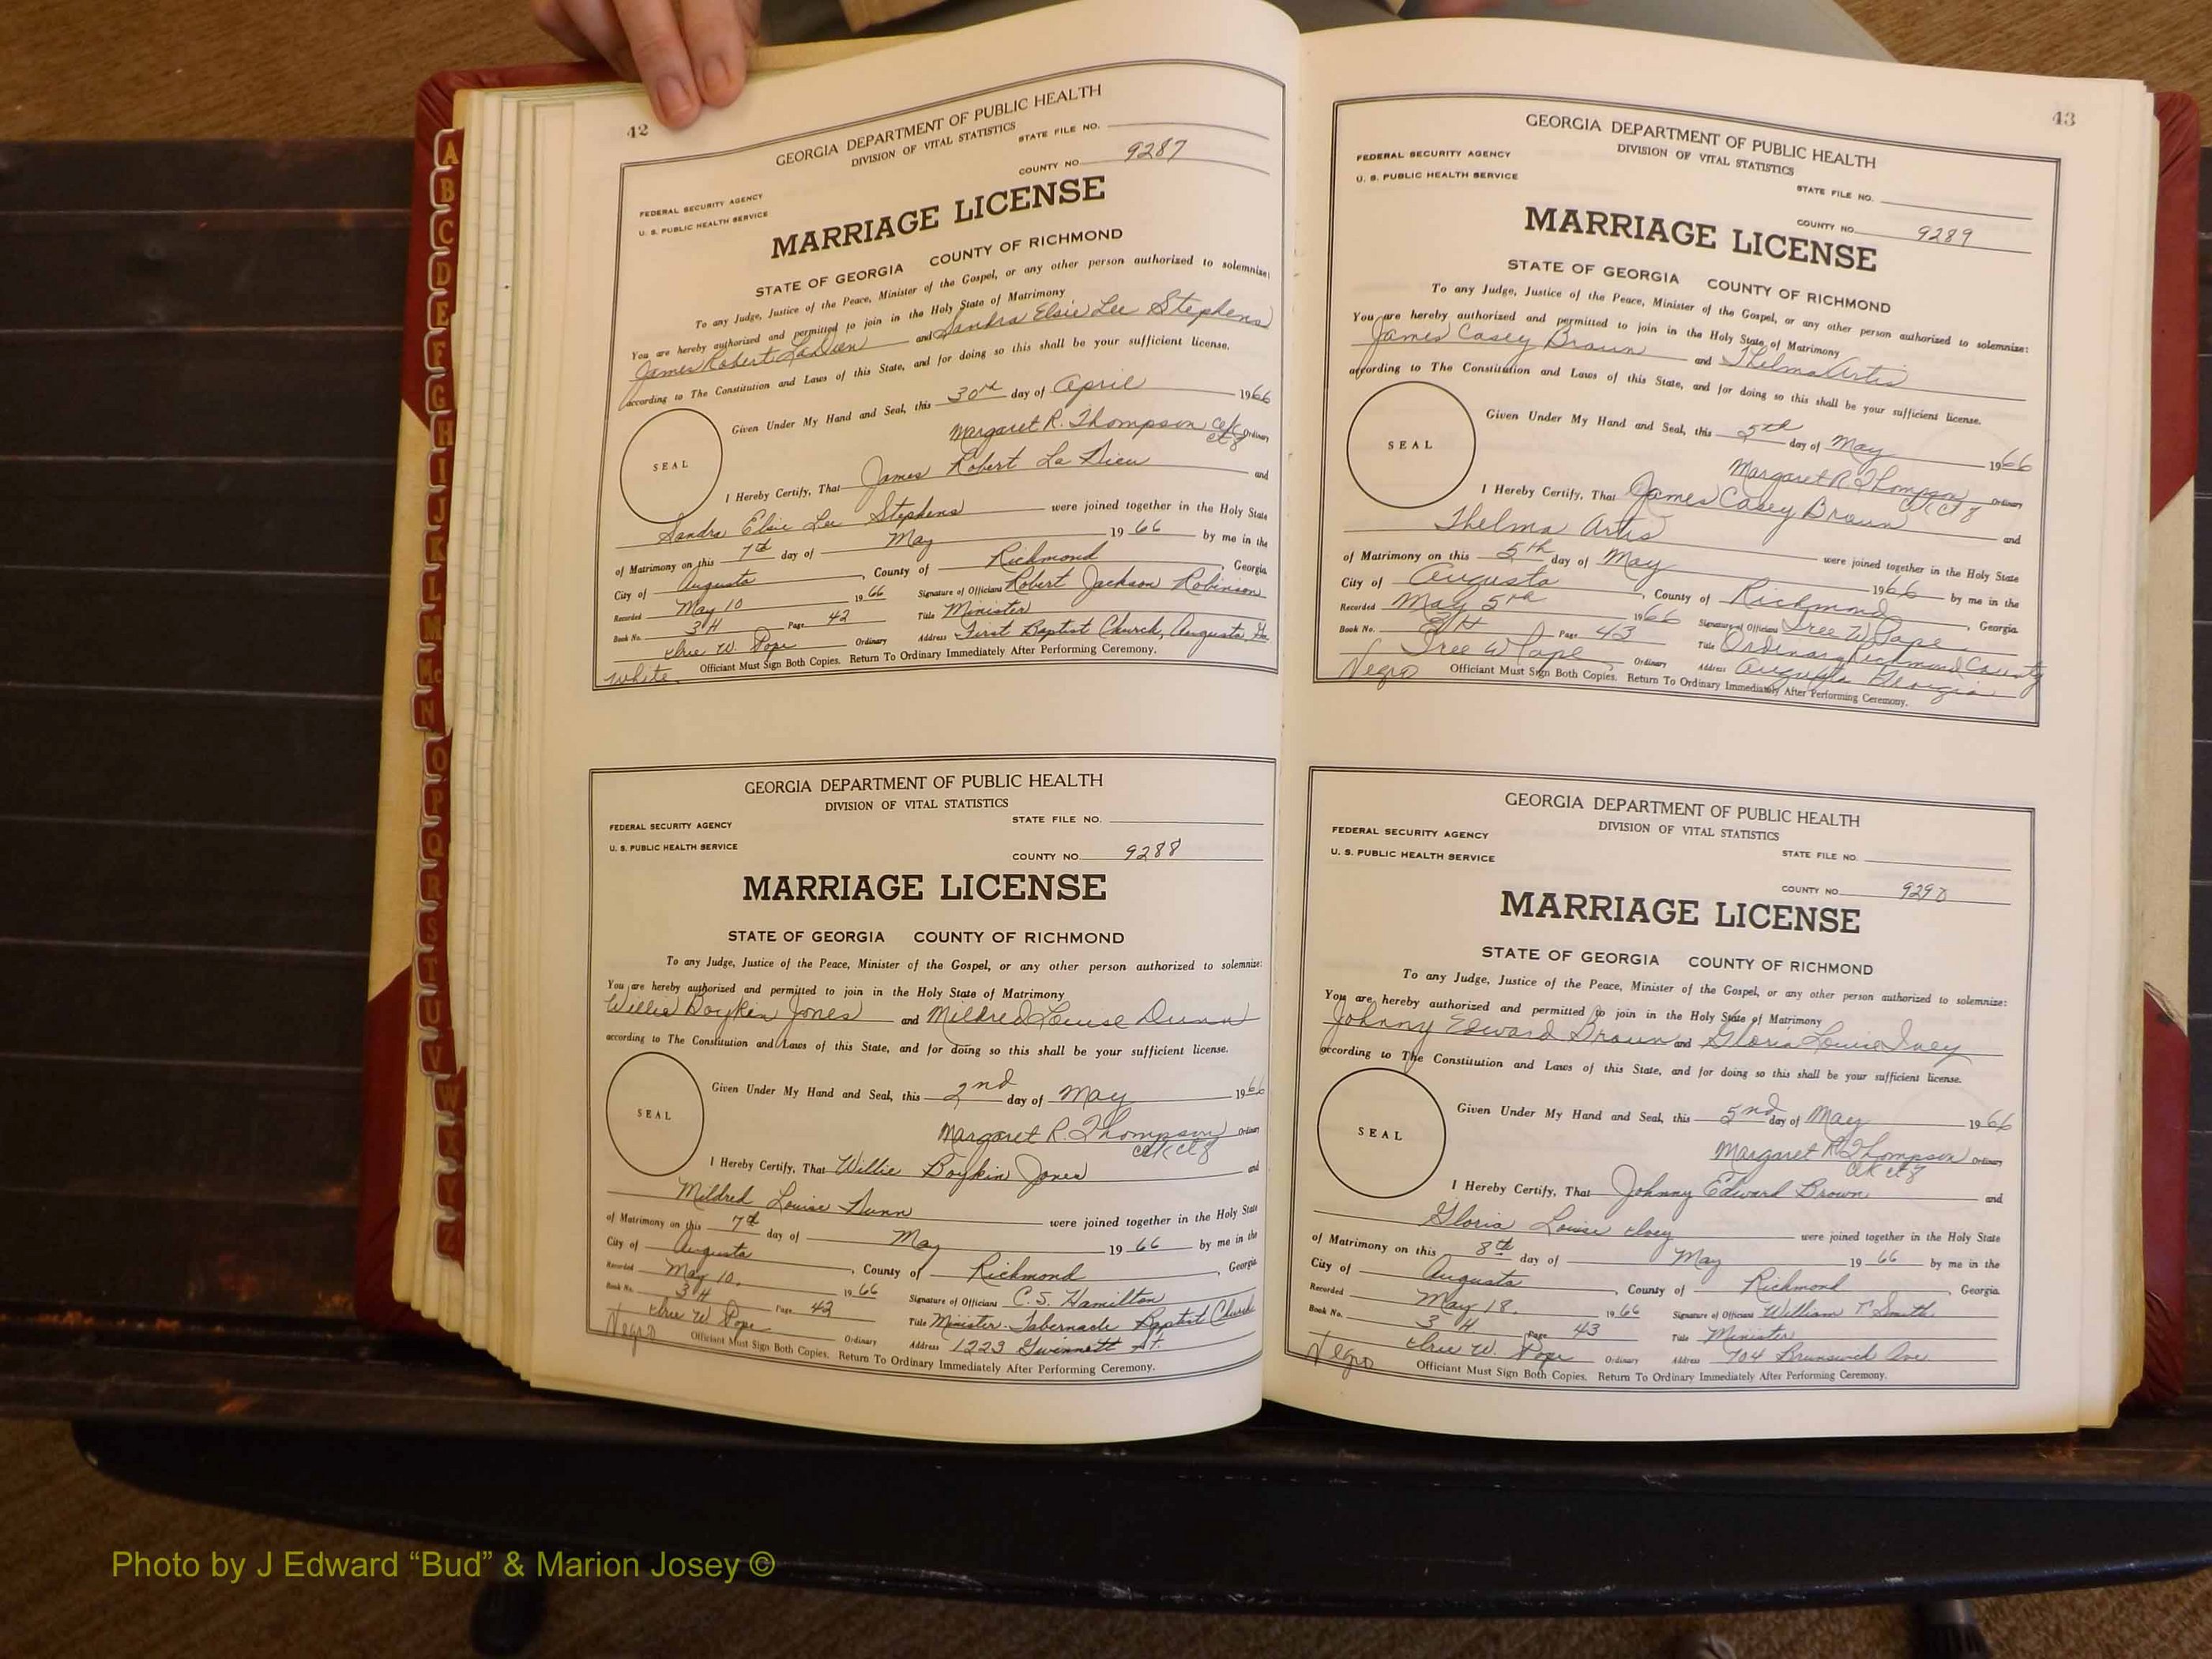 42
GEORGIA DEPARTMENT OF PUBLIC HEALTH
DIVISION OF VITAL STATISTICS
STATE FILE NO.
COUNTY NO. 9287
FEDERAL SECURITY AGENCY
U. S. PUBLIC HEALTH SERVICE
MARRIAGE LICENSE
STATE OF GEORGIA COUNTY OF RICHMOND
To any Judge, Justice of the Peace, Minister of the Gospel, or any other person authorized to solemnize:
You are hereby authorized and permitted to join in the Holy State of Matrimony
James Robert and Sandra Elsie Lee Stephens
according to The Constitution and Laws of this State, and for doing so this shall be your sufficient license.
Given Under My Hand and Seal, this 30rd day of April 1966
SEAL
Margaret R. Thompson Ordinary
I Hereby Certify, That James Robert La and
Sandra Elsie Lee Stephens were joined together in the Holy State
of Matrimony on this 7th day of May 19 66 by me in the
City of Augusta, County of Richmond, Georgia
Recorded May 10 19 66 Signature of Officiant Robert Jackson Robinson
Book No. 3H Page 42 Title Minister
Ordinary Address First Baptist Church, Augusta, Ga
white. Officiant Must Sign Both Copies. Return To Ordinary Immediately After Performing Ceremony.
GEORGIA DEPARTMENT OF PUBLIC HEALTH
DIVISION OF VITAL STATISTICS
FEDERAL SECURITY AGENCY STATE FILE NO.
U. S. PUBLIC HEALTH SERVICE COUNTY NO. 9288
MARRIAGE LICENSE
STATE OF GEORGIA COUNTY OF RICHMOND
To any Judge, Justice of the Peace, Minister of the Gospel, or any other person authorized to solemnize:
You are hereby authorized and permitted to join in the Holy State of Matrimony
Willie Boykin Jones and Mildred Louise Dunn
according to The Constitution and Laws of this State, and for doing so this shall be your sufficient license.
Given Under My Hand and Seal, this 2nd day of May 1966
SEAL
Margaret R. Thompson Ordinary
I Hereby Certify, That Willie Boykin Jones and
Mildred Louise Dunn were joined together in the Holy State
of Matrimony on this 7th day of May 19 66 by me in the
City of Augusta, County of Richmond, Georgia
Recorded May 10. 19 66 Signature of Officiant C. S. Hamilton
Book No. 3H Page 42 Title Minister - Tabernacle Baptist Church
Ordinary Address 1223 Gwinnett St.
Negro Officiant Must Sign Both Copies. Return To Ordinary Immediately After Performing Ceremony.
43
GEORGIA DEPARTMENT OF PUBLIC HEALTH
DIVISION OF VITAL STATISTICS
FEDERAL SECURITY AGENCY
U. S. PUBLIC HEALTH SERVICE
STATE FILE NO.
COUNTY NO. 9289
MARRIAGE LICENSE
STATE OF GEORGIA COUNTY OF RICHMOND
To any Judge, Justice of the Peace, Minister of the Gospel, or any other person authorized to solemnize:
You are hereby authorized and permitted to join in the Holy State of Matrimony
James Casey Brown and Thelma Artis
according to The Constitution and Laws of this State, and for doing so this shall be your sufficient license.
Given Under My Hand and Seal, this 5th day of May 1966
SEAL
Margaret R Thompson Ordinary
I Hereby Certify, That James Casey Brown and
Thelma Artis were joined together in the Holy State
of Matrimony on this 5th day of May 1966 by me in the
City of Augusta, County of Richmond, Georgia
Recorded May 5th 1966 Signature of Officiant
Book No. 3H Page 43 Title Ordinary Richmond County
Ordinary Address Augusta Georgia
Negro Officiant Must Sign Both Copies. Return To Ordinary Immediately After Performing Ceremony.
GEORGIA DEPARTMENT OF PUBLIC HEALTH
DIVISION OF VITAL STATISTICS
FEDERAL SECURITY AGENCY
U. S. PUBLIC HEALTH SERVICE
STATE FILE NO.
COUNTY NO. 9290
MARRIAGE LICENSE
STATE OF GEORGIA COUNTY OF RICHMOND
To any Judge, Justice of the Peace, Minister of the Gospel, or any other person authorized to solemnize:
You are hereby authorized and permitted to join in the Holy State of Matrimony
Johnny Edward Brown and Gloria Louise Ivey
according to The Constitution and Laws of this State, and for doing so this shall be your sufficient license.
Given Under My Hand and Seal, this 5nd day of May 1966
SEAL
Margaret R Thompson Ordinary
I Hereby Certify, That Johnny Edward Brown and
Gloria Louise Ivey were joined together in the Holy State
of Matrimony on this 8th day of May 19 66 by me in the
City of Augusta, County of Richmond, Georgia
Recorded May 18. 19 66 Signature of Officiant William T. Smith
Book No. 3 H Page 43 Title Minister
Ordinary Address 704 Brunswick Ave
Negro Officiant Must Sign Both Copies. Return To Ordinary Immediately After Performing Ceremony.
A
B
C
D
E
F
G
H
I
J
K
L
M
Mc
N
O
P
Q
R
S
T
U
V
W
X
Y
Z
Photo by J Edward “Bud” & Marion Josey ©